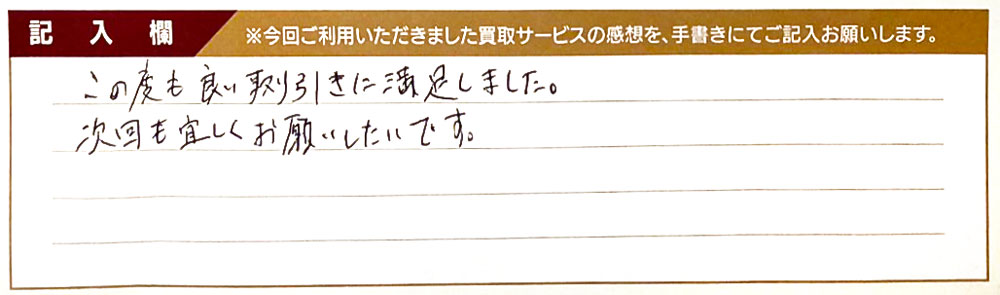 記入欄 ※今回ご利用いただきました買取サービスの感想を、手書きにてご記入お願いします。
この度も良い取り引きに満足しました。
次回も宜しくお願いしたいです。